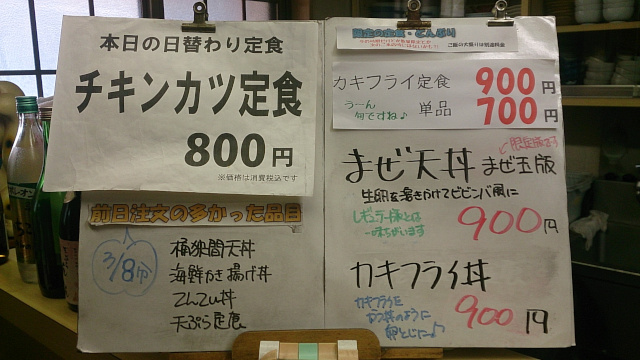 本日の日替わり定食
チキンカツ定食
800円
※価格は消費税込です
前日注文の多かった品目
3/8(アリ)
桶狭間天丼
海鮮かき揚げ丼
てんてい丼
天ぷら定食
限定の定食・どんぶり
ご飯の大盛りは別途料金
カキフライ定食 900円
うーん 旬ですね♪
単品 700円
限定版です
まぜ天丼 まぜ玉版
生卵を溶き付けてビビンバ風に
レギュラー版とは
一味ちがいます
900円
カキフライ丼
カキフライを
カツ丼のように
卵とじに♪
900円